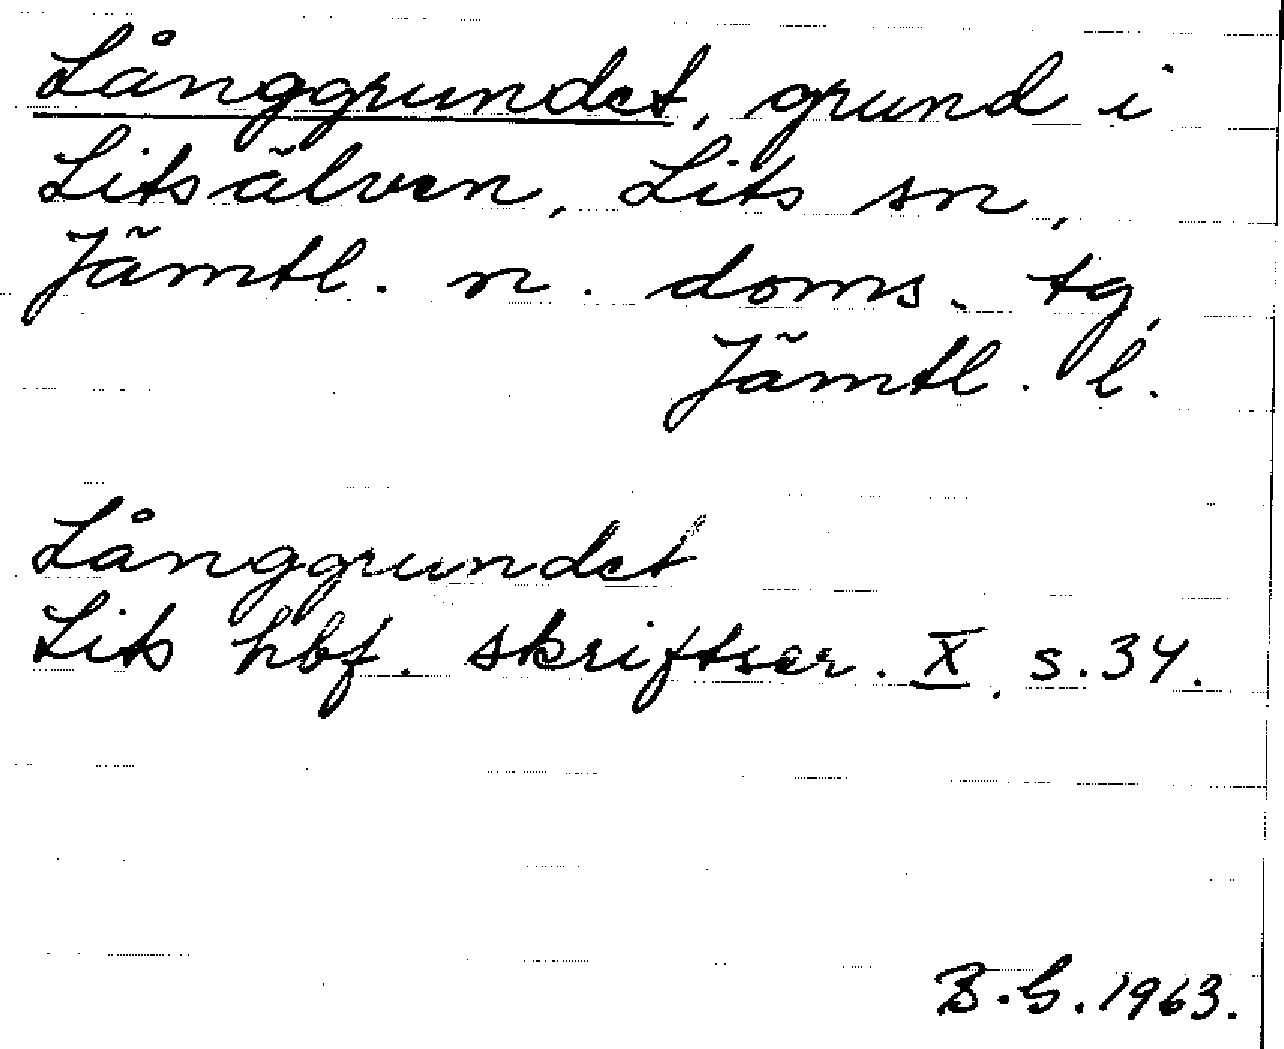 Långgrundet, grund i
Litsälven, Lits sn,
Jämtl. n. doms. tg,
Jämtl. l.
Långgrundet
Lits hbf. skriftser. X. s. 34.
B.G. 1963.